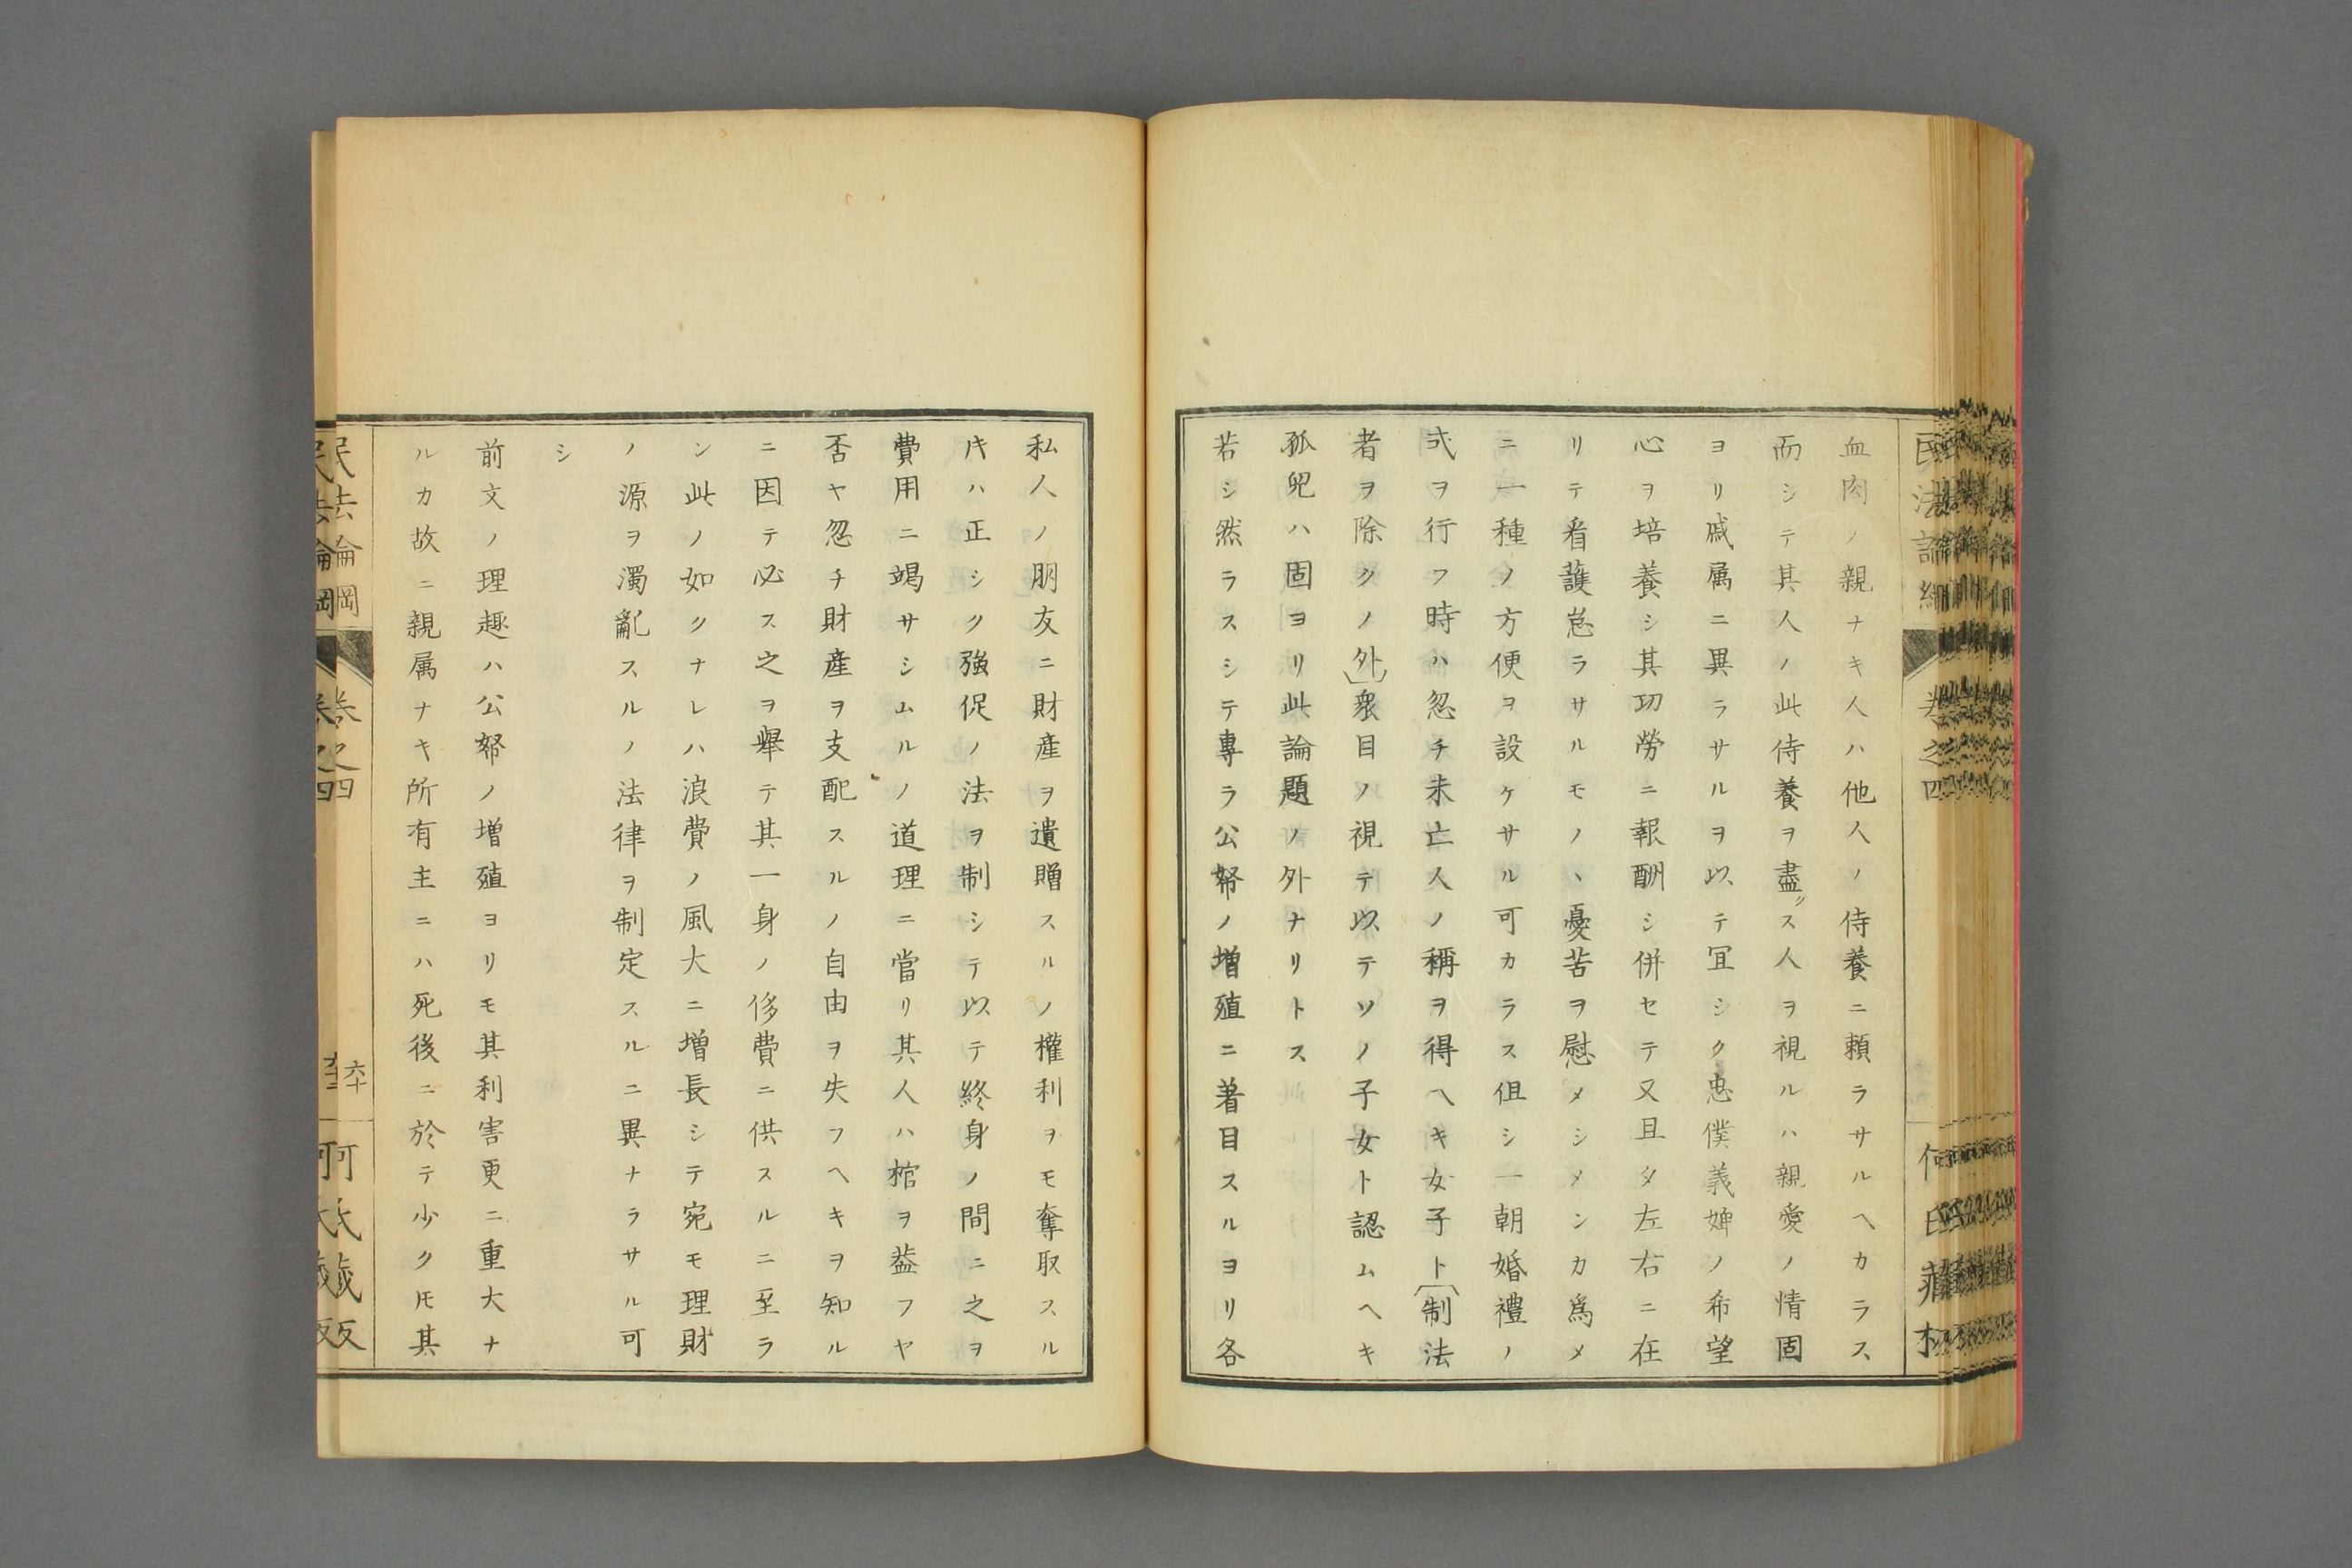 血肉ノ親ナキ人ハ他人ノ侍養ニ頼ラサルヘカラス
而シテ其人ノ此侍養ヲ盡〃ス人ヲ視ルハ親愛ノ情固
ヨリ戚属ニ異ラサルヲ以テ冝シク忠僕義婢ノ希望
心ヲ培養シ其功勞ニ報酬シ併セテ又且タ左右ニ在
リテ看護怠ラサルモノヽ憂苦ヲ慰メシメンカ爲メ
ニ一種ノ方便ヲ設ケサル可カラス但シ一朝婚禮ノ
式ヲ行フ時ハ忽チ未亡人ノ稱ヲ得ヘキ女子ト〔制法
者ヲ除クノ外〕衆目ノ視テ以テソノ子女ト認ムヘキ
孤兒ハ固ヨリ此論題ノ外ナリトス
若シ然ラスシテ專ラ公帑ノ増殖ニ著目スルヨリ各
民法論綱
卷之四
何氏藏
私人ノ朋友ニ財産ヲ遺贈スルノ權利ヲモ奪取スル
片ハ正シク強促ノ法ヲ制シテ以テ終身ノ間ニ之ヲ
費用ニ竭サシムルノ道理ニ當リ其人ハ棺ヲ葢フヤ
否ヤ忽チ財産ヲ支配スルノ自由ヲ失フヘキヲ知ル
ニ因テ必ス之ヲ舉テ其一身ノ侈費ニ供スルニ至ラ
ン此ノ如クナレハ浪費ノ風大ニ増長シテ宛モ理財
ノ源ヲ濁亂スルノ法律ヲ制定スルニ異ナラサル可
シ
前文ノ理趣ハ公帑ノ増殖ヨリモ其利害更ニ重大ナ
ルカ故ニ親属ナキ所有主ニハ死後ニ於テ少クモ其
卷之四
六十